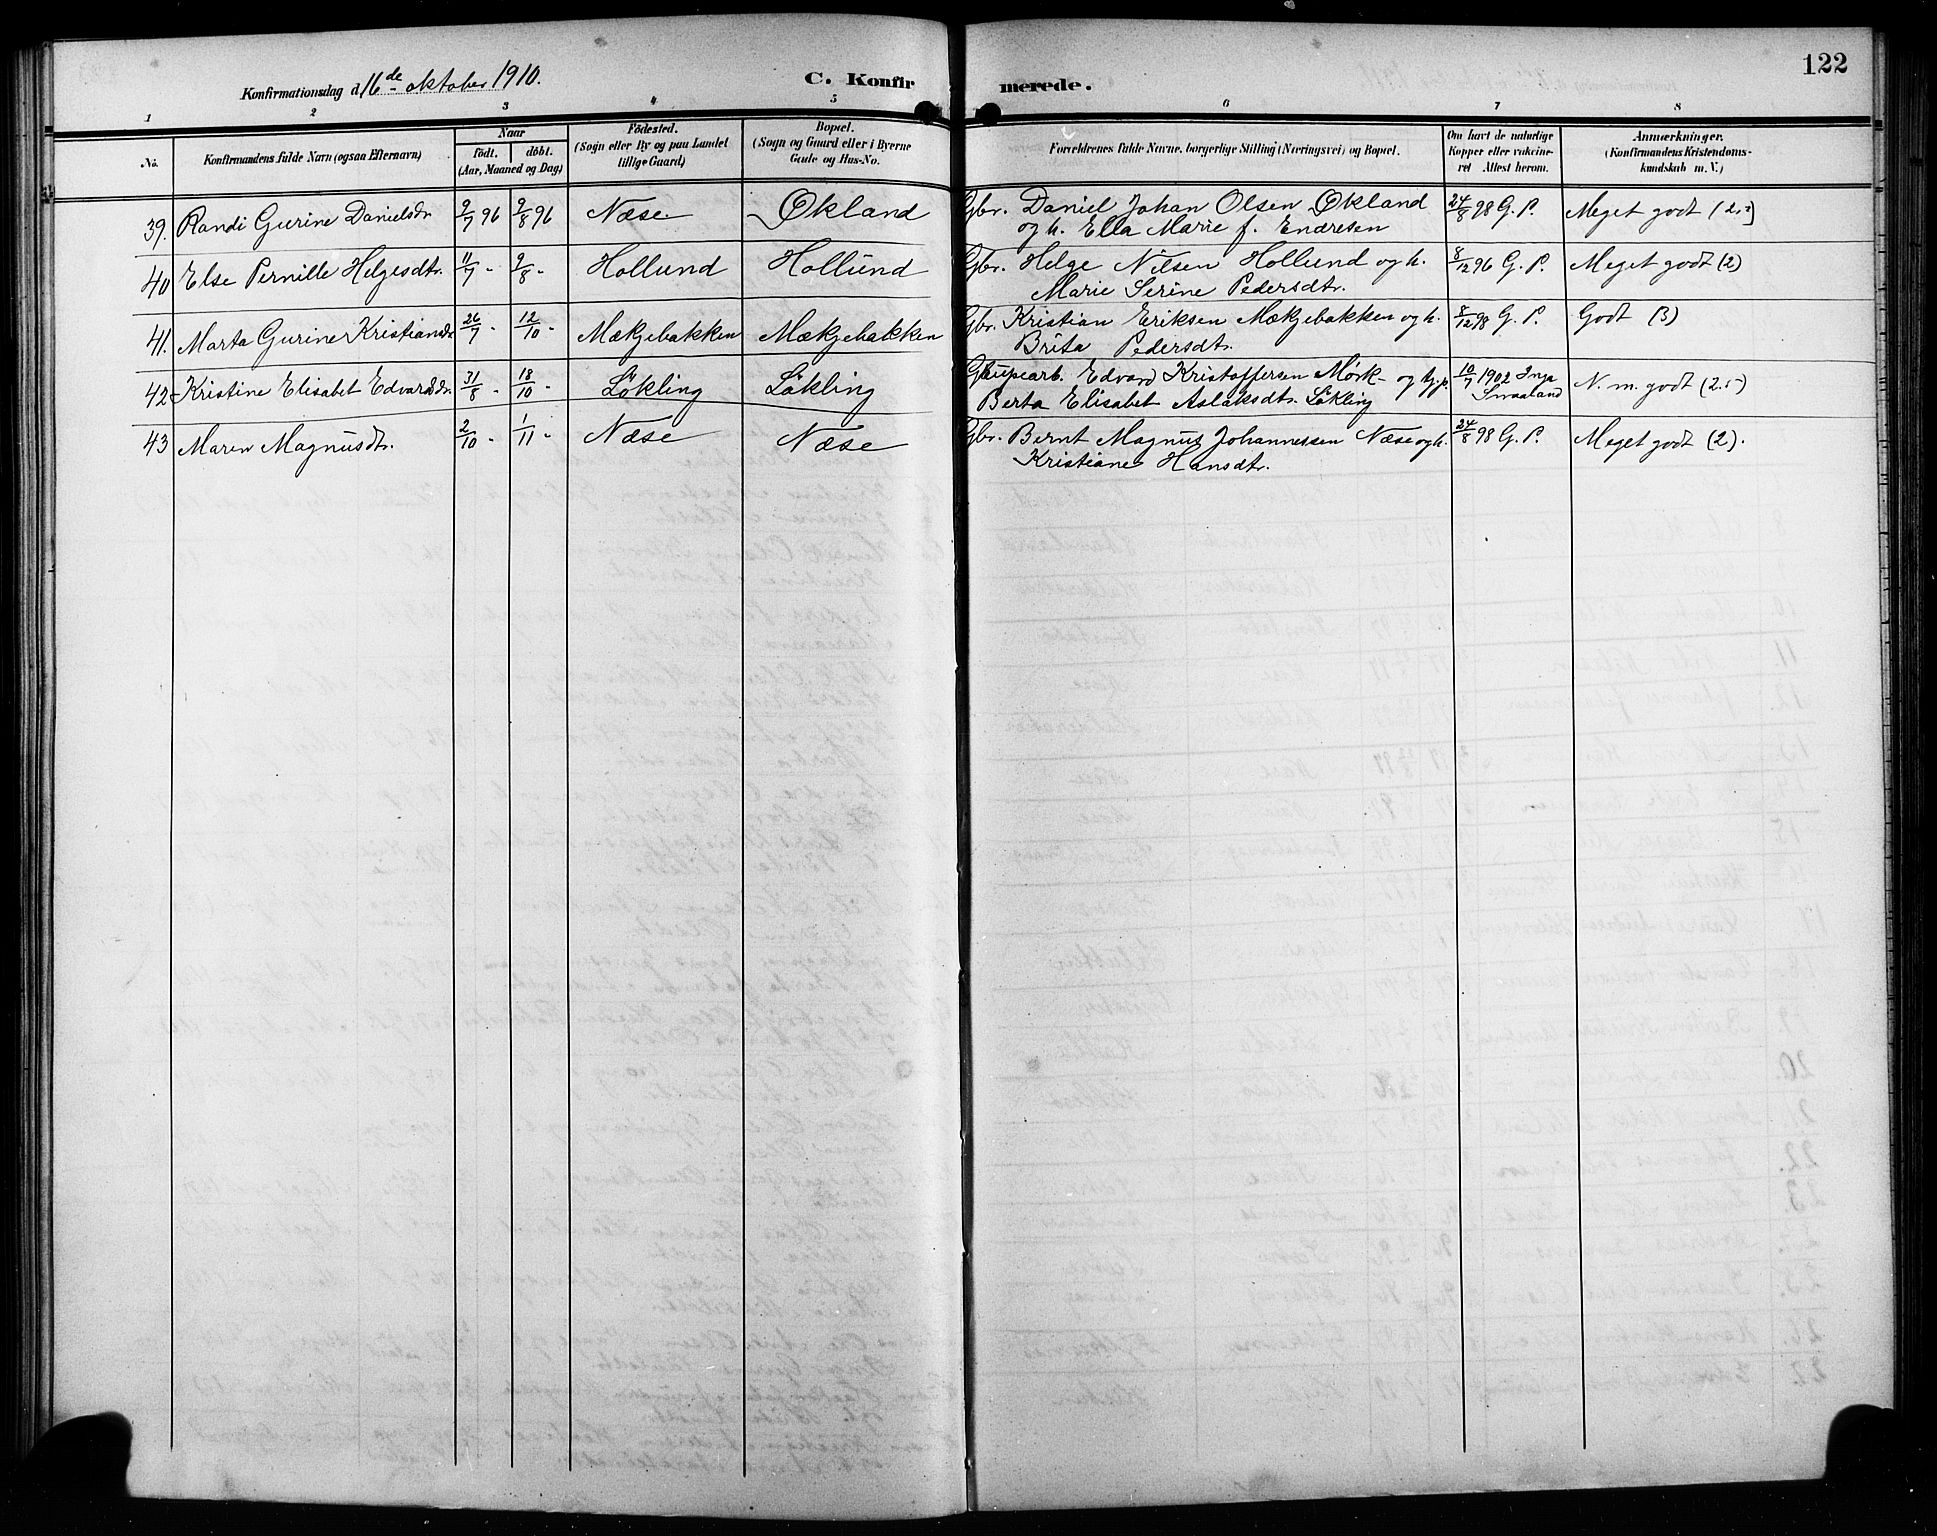 122
Konfirmationsdag d. 16de oktober 1910.
C. Konfirmerede.
1 2 3 4 5 6 7 8
No. Konfirmandens fulde Navn (ogsaa Efternavn) Naar födt. döbt. (Aar, Maaned og Dag) Födested. (Sogn eller By og paa Landet tillige Gaard) Bopæl. (Sogn og Gaard eller i Byerne Gade og Hus-No. Forældrenes fulde Navne, borgerlige Stilling (Næringsvei) og Bopæl. Om havt de naturlige Kopper eller vakcineret Attest herom. Anmærkninger. (Konfirmandens Kristendomskundskab m. V.)
39. Randi Gurine Danielsdr. 9/7 96 9/8 96 Næse. Økland Gbr. Daniel Johan Olsen Økland 24/8 98 G. P. Meget godt (2.÷)
og h. Ella Marie f. Endresen
40 Else Pernille Helgesdtr. 11/7 - 9/8 - Hollund Hollund Gbr. Helge Nilsen Hollund og h. 8/12 96 G. P. Meget godt (2)
Marie Serine Pedersdtr.
41. Marta Gurine Kristiansdr 26/7 - 12/10 - Mækjebakken Mækjebakken Gbr. Kristian Eriksen Mækjebakken og h. 8/12 98 G. P. Godt (3)
Brita Pedersdtr.
42- Kristine Elisabet Edvardsdr. 31/8 - 18/10 - Lökling Lökling Edvard Kristoffersen Mørk- og 10/7 1902 Inga N. m. godt (2.÷)
Berta Elisabet Aslaksdtr. Lökling Smaaland
43 Maren Magnusdtr. 2/10 - 1/11 - Næse Næse Gbr. Bernt Magnus Johannessen Næse og h. 24/8 98 G. P. Meget godt (2).
Kristiane Hansdtr.